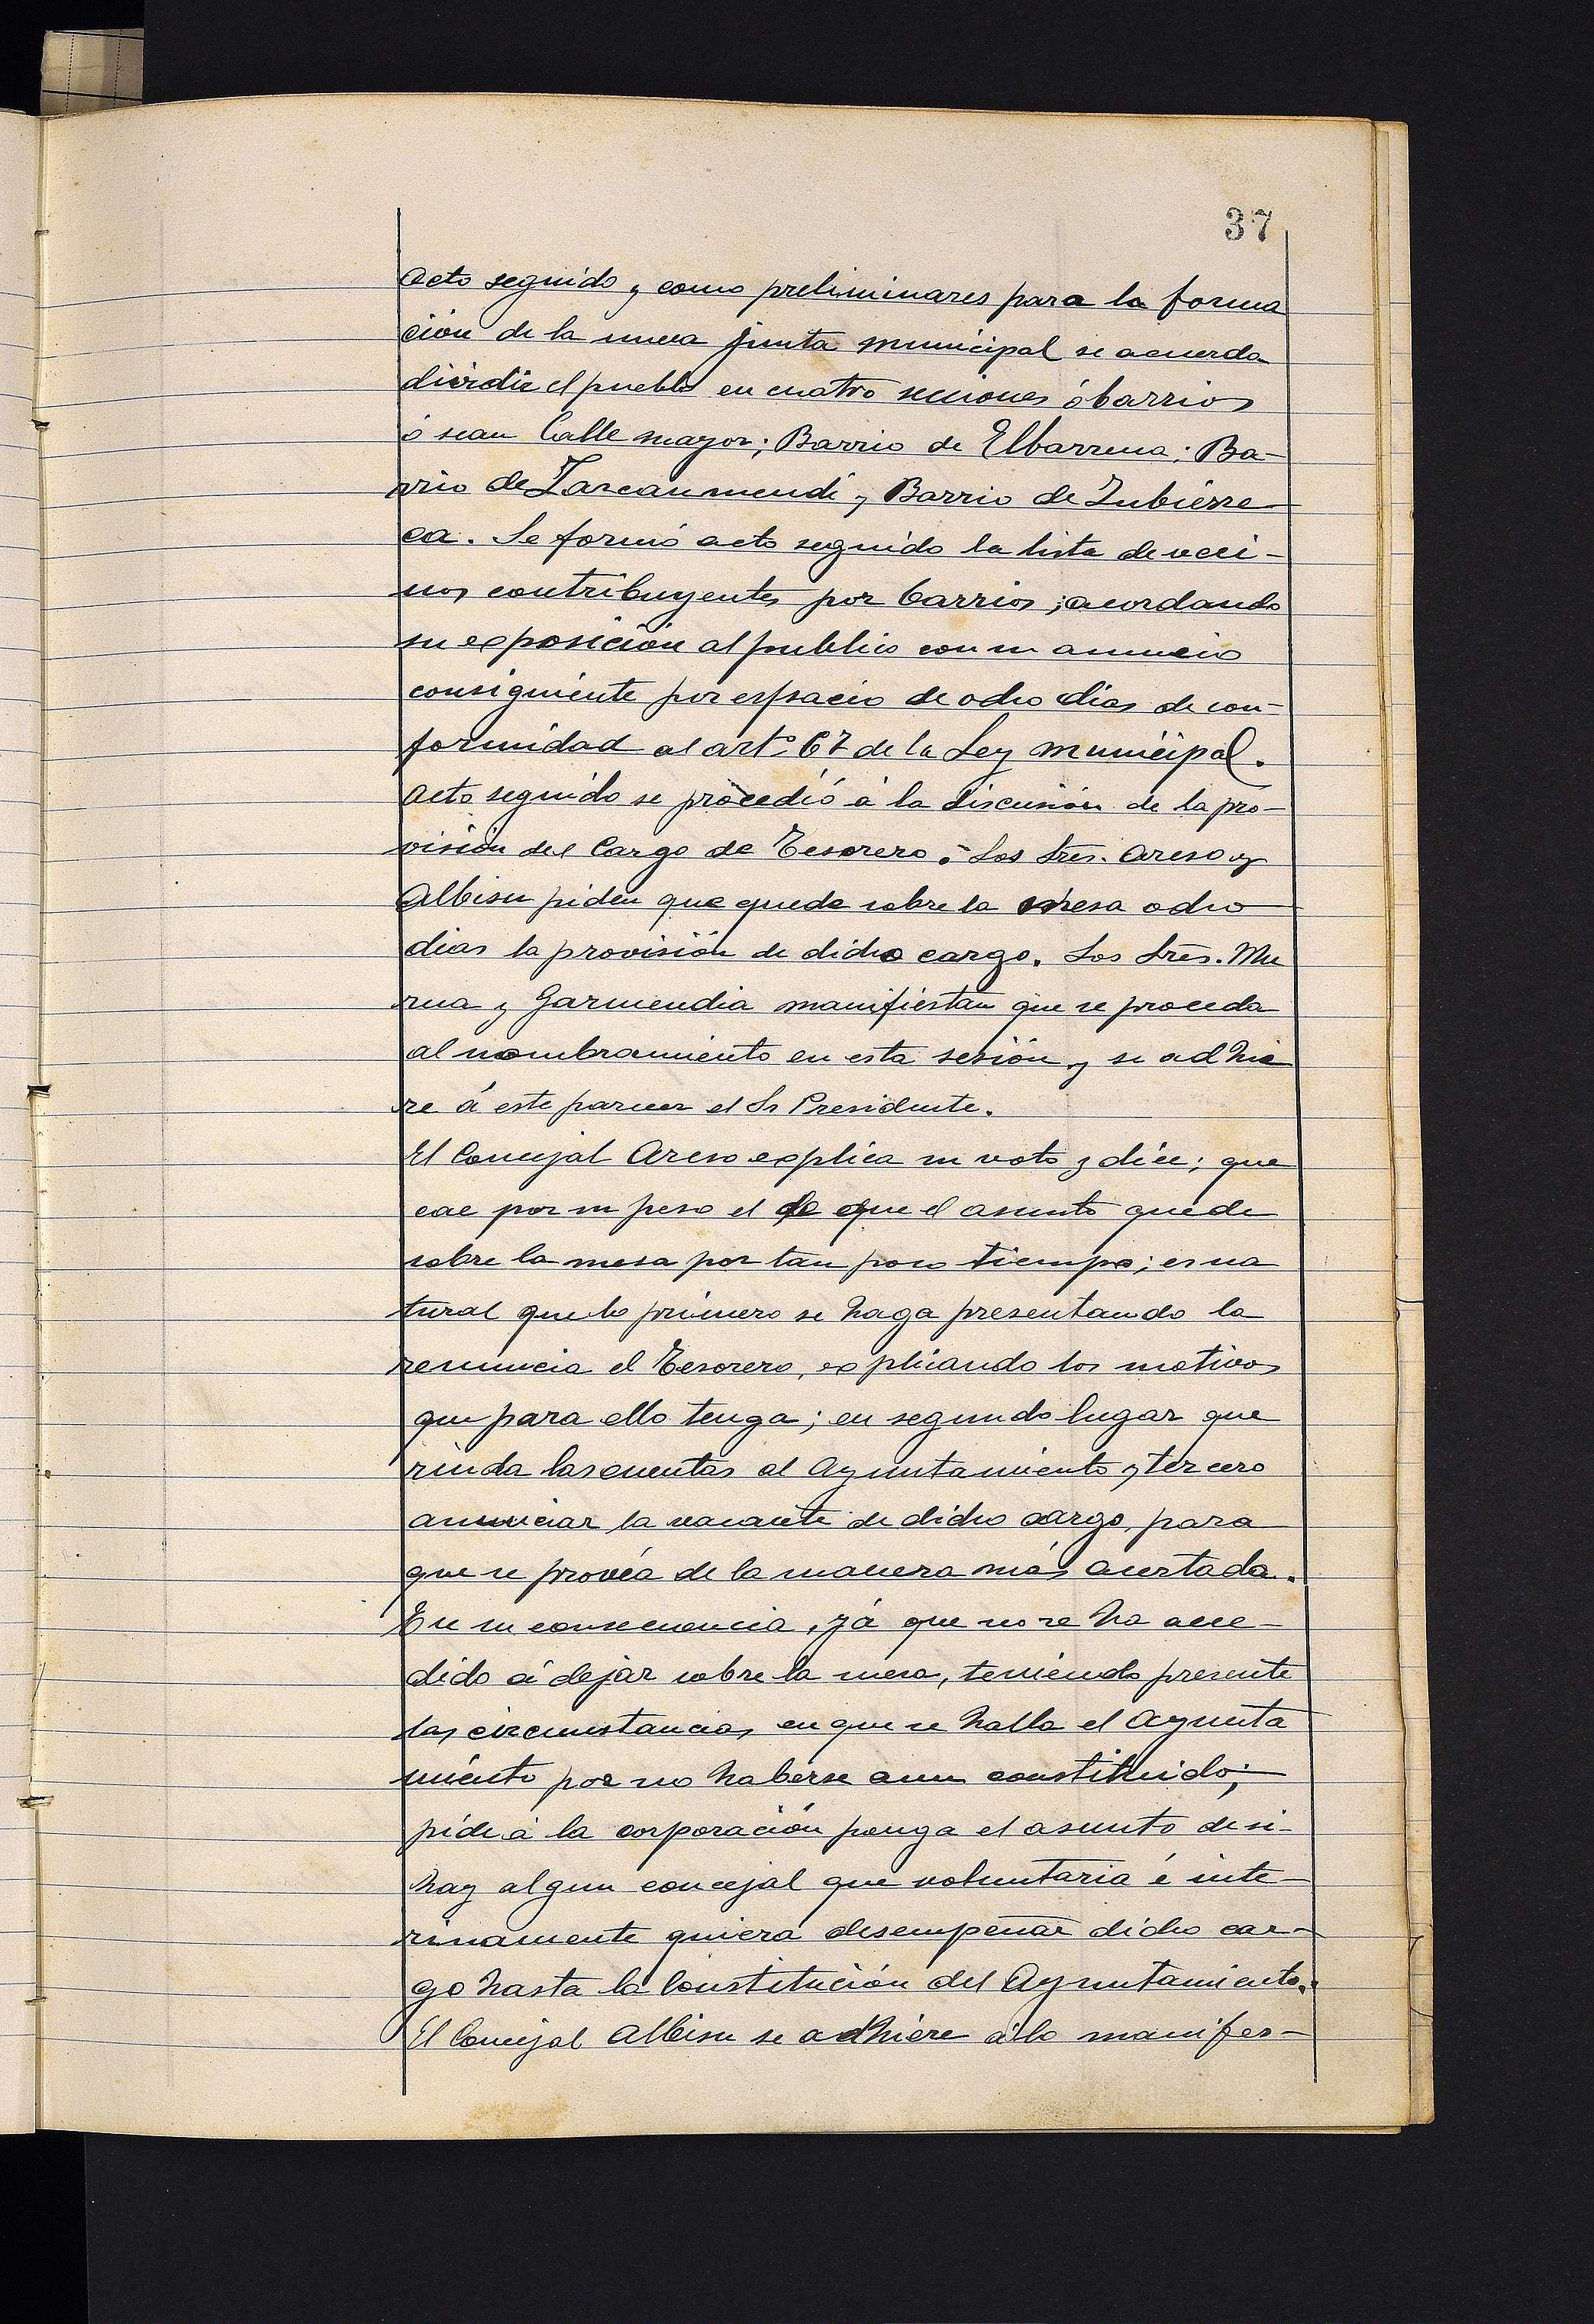 37
Acto seguido y como preliminares para la forma
ción de la nueva Junta municipal se acuerda
dividir el pueblo en cuatro secciones ó barrios
ó sean Calle mayor; Barrio de Elbarrena; Ba-
rrio de Lazcaumendi y Barrio de Zubierre
ca. Se formó acto seguido la lista de veci-
nos contribuyentes por barrios; acordando
su exposición al publico con su anuncio
consiguiente por espacio de ocho dias de con-
formidad al artº 67 de la Ley municipal.
Acto seguido se procedió á la discusión de la pro-
visión del Cargo de Tesorero. Los Sres. Areso y
Albisu piden que quede sobre la mesa ocho
dias la provisión de dicho cargo. Los Sres. Mu
rua y Garmendia manifiestan que se proceda
al nombramiento en esta sesión y se adhie
re á este parecer el Sr Presidente.
El Concejal Areso explica su voto y dice; que
cae por su peso el de que el asunto quede
sobre la mesa por tan poco tiempo; es na
tural que lo primero se haga presentando la
renuncia el Tesorero, explicando los motivos
que para ello tenga; en segundo lugar que
rinda las cuentas al Ayuntamiento y tercero
anunciar la vacante de dicho cargo, para
que se provéa de la manera más acertada.
En su consecuencia, yá que no se ha acce-
dido á dejar sobre la mesa, teniendo presente
las circunstancias en que se halla el Ayunta
miento por no haberse aun constituido;
pide á la corporación ponga el asunto de si
hay algun concejal que voluntaria é inte-
rinamente quiera desempeñar dicho car-
go hasta la Constitución del Ayuntamiento.
El Concejal Albisu se adhiere á lo manifes-